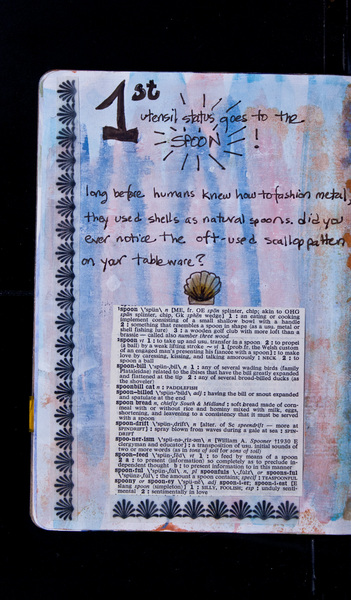 1st
utensil status goes to the
SPOON !
long before humans knew how to fashion metal,
they used shells as natural spoons. did you
ever notice the oft-used scallop pattern
on your tableware?
spoon \'spün\ n [ME, fr. OE spōn splinter, chip; akin to OHG
spān splinter, chip, Gk sphēn wedge] 1 : an eating or cooking
implement consisting of a small shallow bowl with a handle
2 : something that resembles a spoon in shape (as a usu. metal or
shell fishing lure) 3 : a wooden golf club with more loft than a
brassie — called also number three wood
spoon vt 1 : to take up and usu. transfer in a spoon 2 : to propel
(a ball) by a weak lifting stroke vi 1 [prob. fr. the Welsh custom
of an engaged man's presenting his fiancée with a spoon] : to make
love by caressing, kissing, and talking amorously : NECK 2 : to
spoon a ball
spoon-bill \'spün-ˌbil\ n 1 : any of several wading birds (family
Plataleidae) related to the ibises that have the bill greatly expanded
and flattened at the tip 2 : any of several broad-billed ducks (as
the shoveler)
spoonbill cat n : PADDLEFISH
spoon-billed \'spün-ˌbild\ adj : having the bill or snout expanded
and spatulate at the end
spoon bread n, chiefly South & Midland : soft bread made of corn-
meal with or without rice and hominy mixed with milk, eggs,
shortening, and leavening to a consistency that it must be served
with a spoon
spoon-drift \'spün-ˌdrift\ n [alter. of Sc speendrift — more at
SPINDRIFT] : spray blown from waves during a gale at sea : SPIN-
DRIFT
spoo-ner-ism \'spü-nə-ˌriz-əm\ n [William A. Spooner †1930 E
clergyman and educator] : a transposition of usu. initial sounds of
two or more words (as in tons of soil for sons of toil)
spoon-feed \'spün-ˌfēd\ vt 1 : to feed by means of a spoon
2 a : to present (information) so completely as to preclude in-
dependent thought b : to present information to in this manner
spoon-ful \'spün-ˌfu̇l\ n, pl spoonfuls \-ˌfu̇lz\ or spoons-ful
: the amount a spoon contains; specif : TEASPOONFUL
spoony or spoon-ey \'spü-nē\ adj spoon-i-er; spoon-i-est [E
slang spoon (simpleton)] 1 : SILLY, FOOLISH; esp : unduly senti-
mental 2 : sentimentally in love